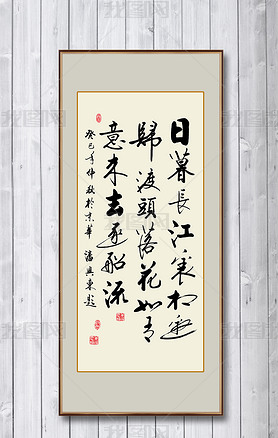 日暮長江裏相邀
歸渡頭落花如有
意來去逐船流
癸巳年仲秋於京華 潘興東題